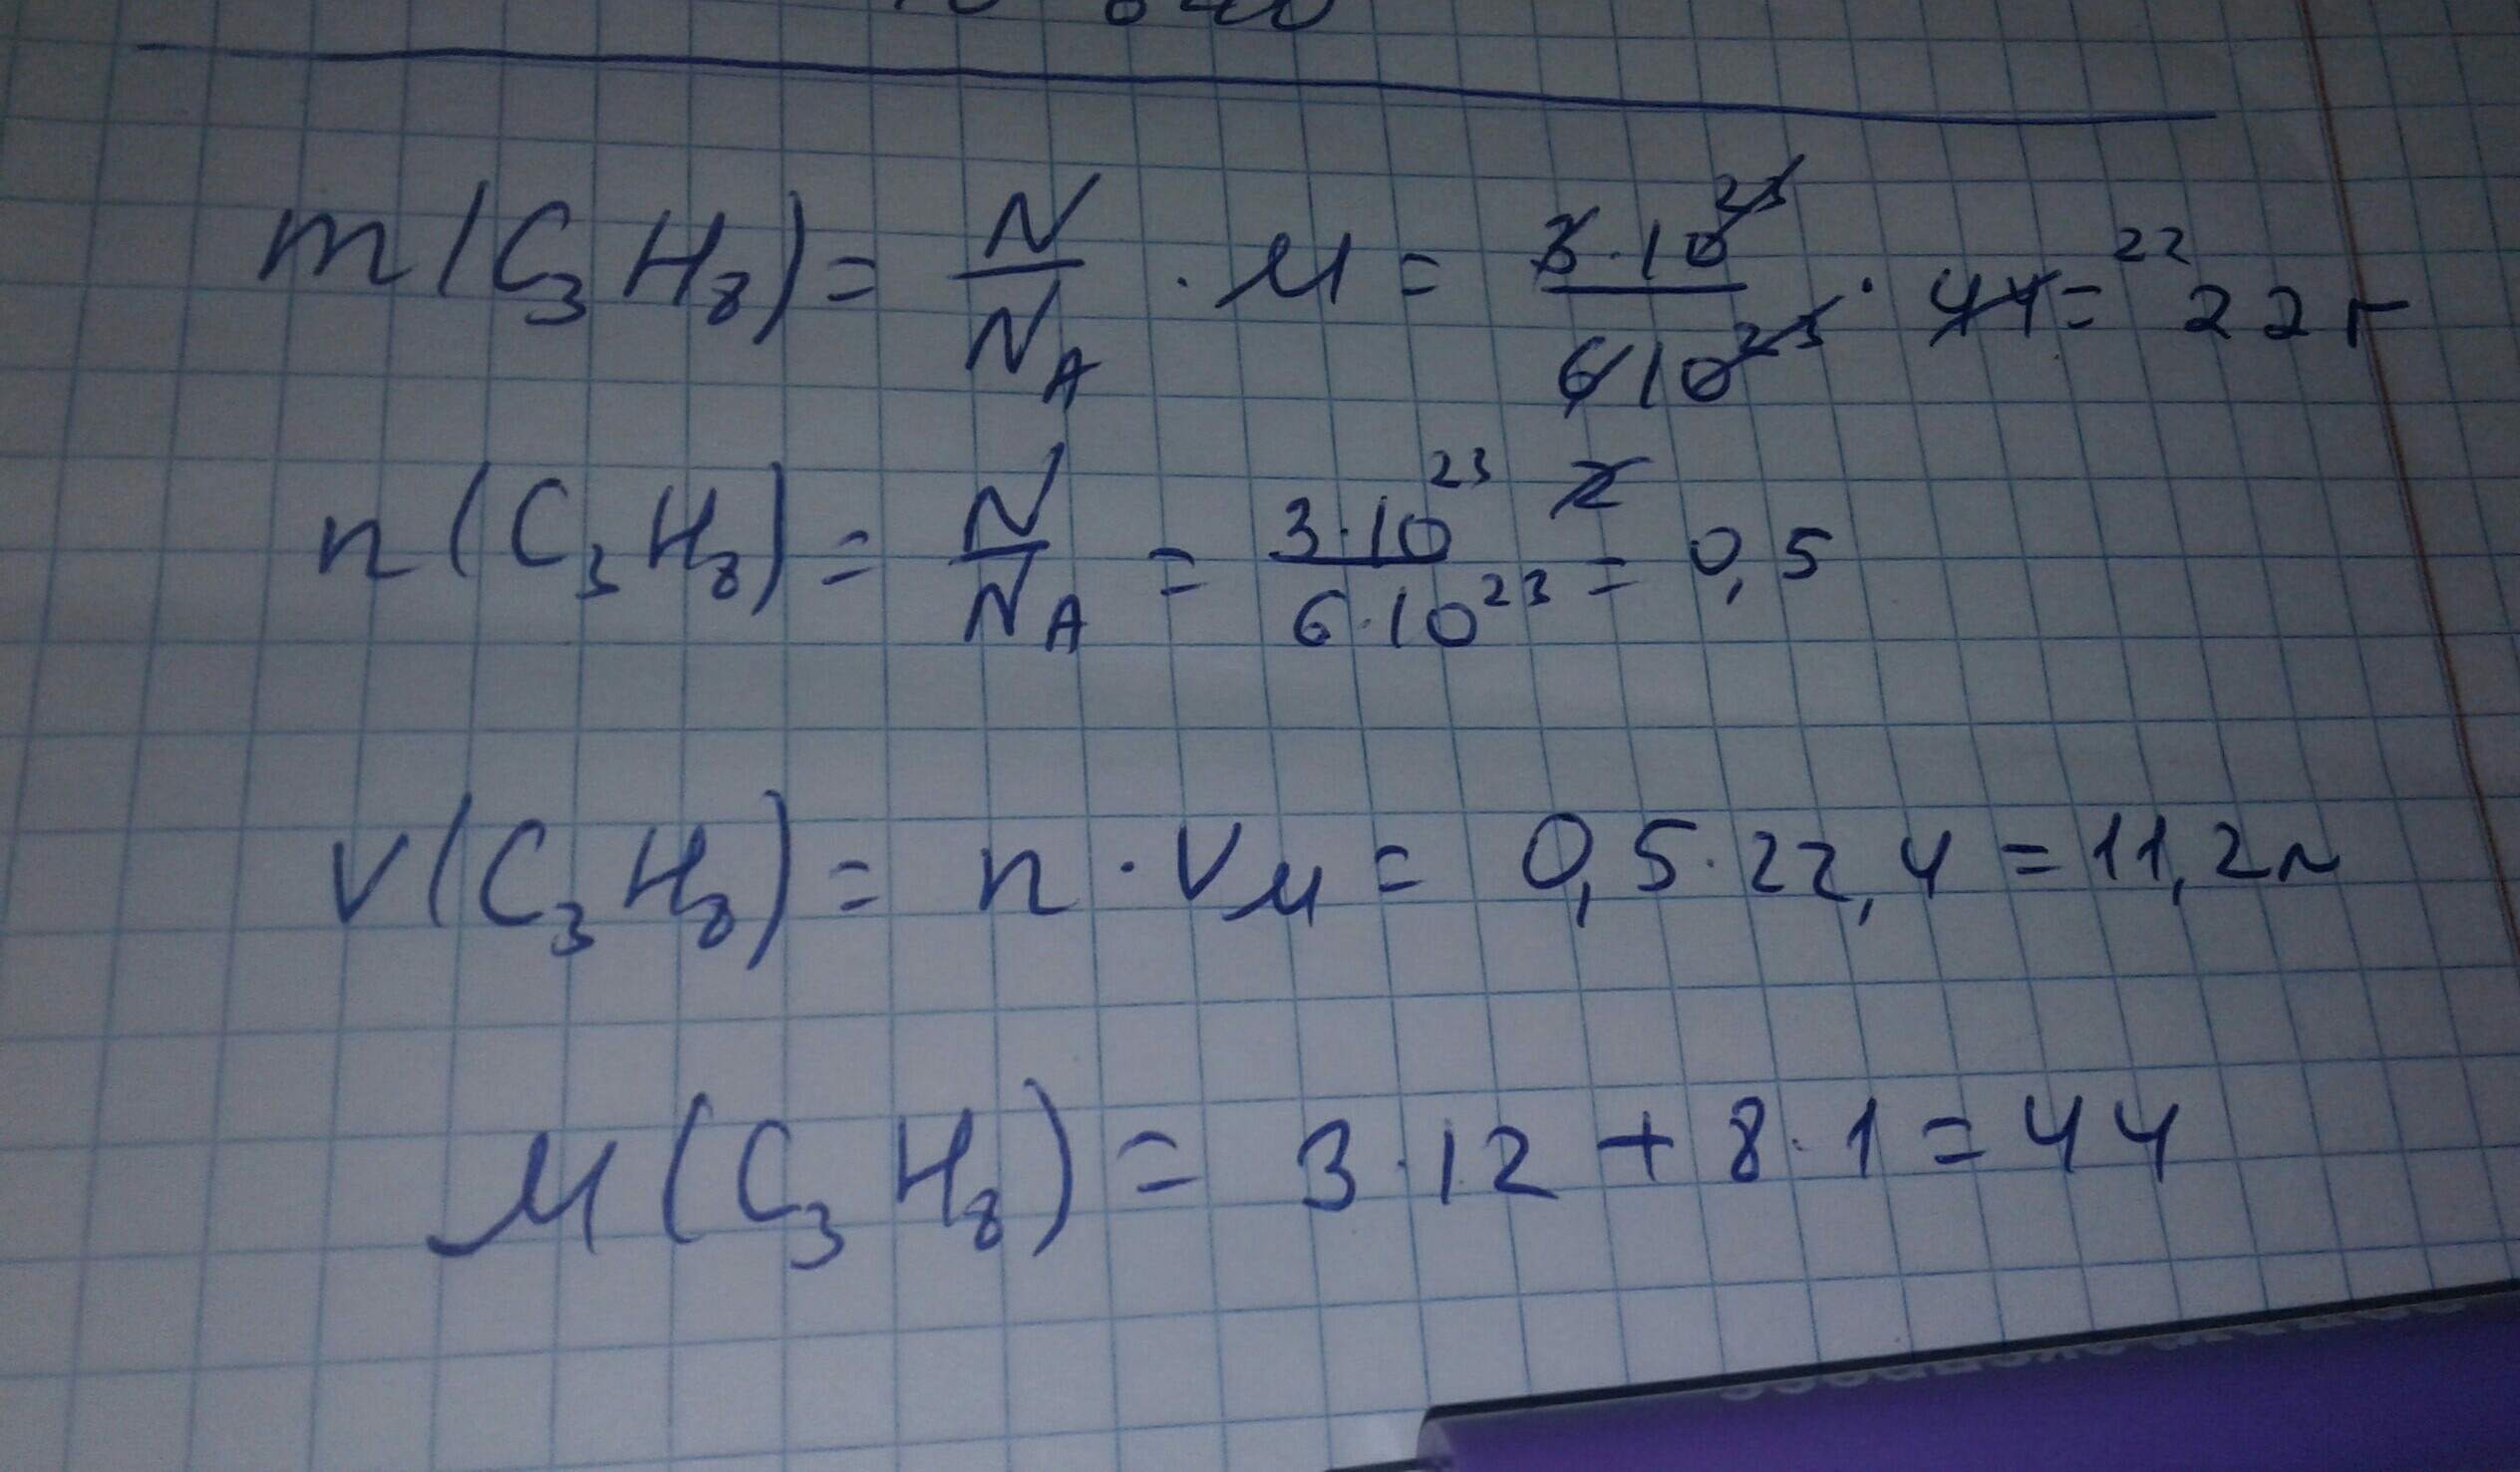 m(C₃H₈) = N/N_A · M = 3·10²³/6 10²³ · 44 = ²² 22 г
n(C₃H₈) = N/N_A = 3·10²³/6·10²³ = 0,5
V(C₃H₈) = n · Vм = 0,5 · 22,4 = 11,2 л
M(C₃H₈) = 3·12 + 8·1 = 44